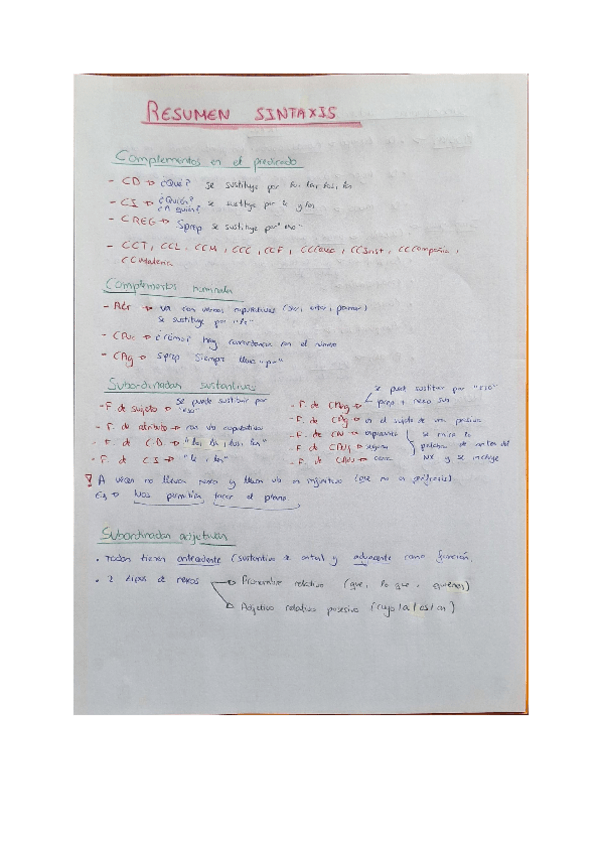 RESUMEN SINTAXIS
Complementos en el predicado
- CD → ¿Qué? se sustituye por lo, la, los, las
- CI → ¿Quién? ¿A quién? se sustituye por le y les
- CREG → Sprep se sustituye por
- CCT, CCL, CCM, CCC, CCF, CCCausa, CCInst, CCCompañía,
CCMateria
Complementos
- Atr → va con verbos copulativos (ser, estar, parecer)
se sustituye por "lo"
- → ¿cómo? hay concordancia en el
- CAg → Sprep siempre lleva "por"
Subordinadas sustantivas
- F. de sujeto → se puede sustituir por "eso"
- F. de atributo → con vb copulativo
- F. de CD → "lo, la, los, las"
- F. de CI → "le, les"
- F. de CReg → se puede sustituir por "eso"
prep + nexo sub
- F. de CAg → es el sujeto de una pasiva
- F. de CN → se mira la
- F. de CAdj → palabra de antes del
- F. de CAdv → cerca NX y se incluye
? A veces no llevan nexo y llevan vb en infinitivo (que no es perífrasis)
Ej → Nos permitían tocar el piano
Subordinadas adjetivas
• Todas tienen antecedente (sustantivo de antes) y adyacente como función.
• 2 tipos de nexos → Pronombre relativo (que, lo que, quienes)
→ Adjetivo relativo posesivo (cuyo/a/os/as)